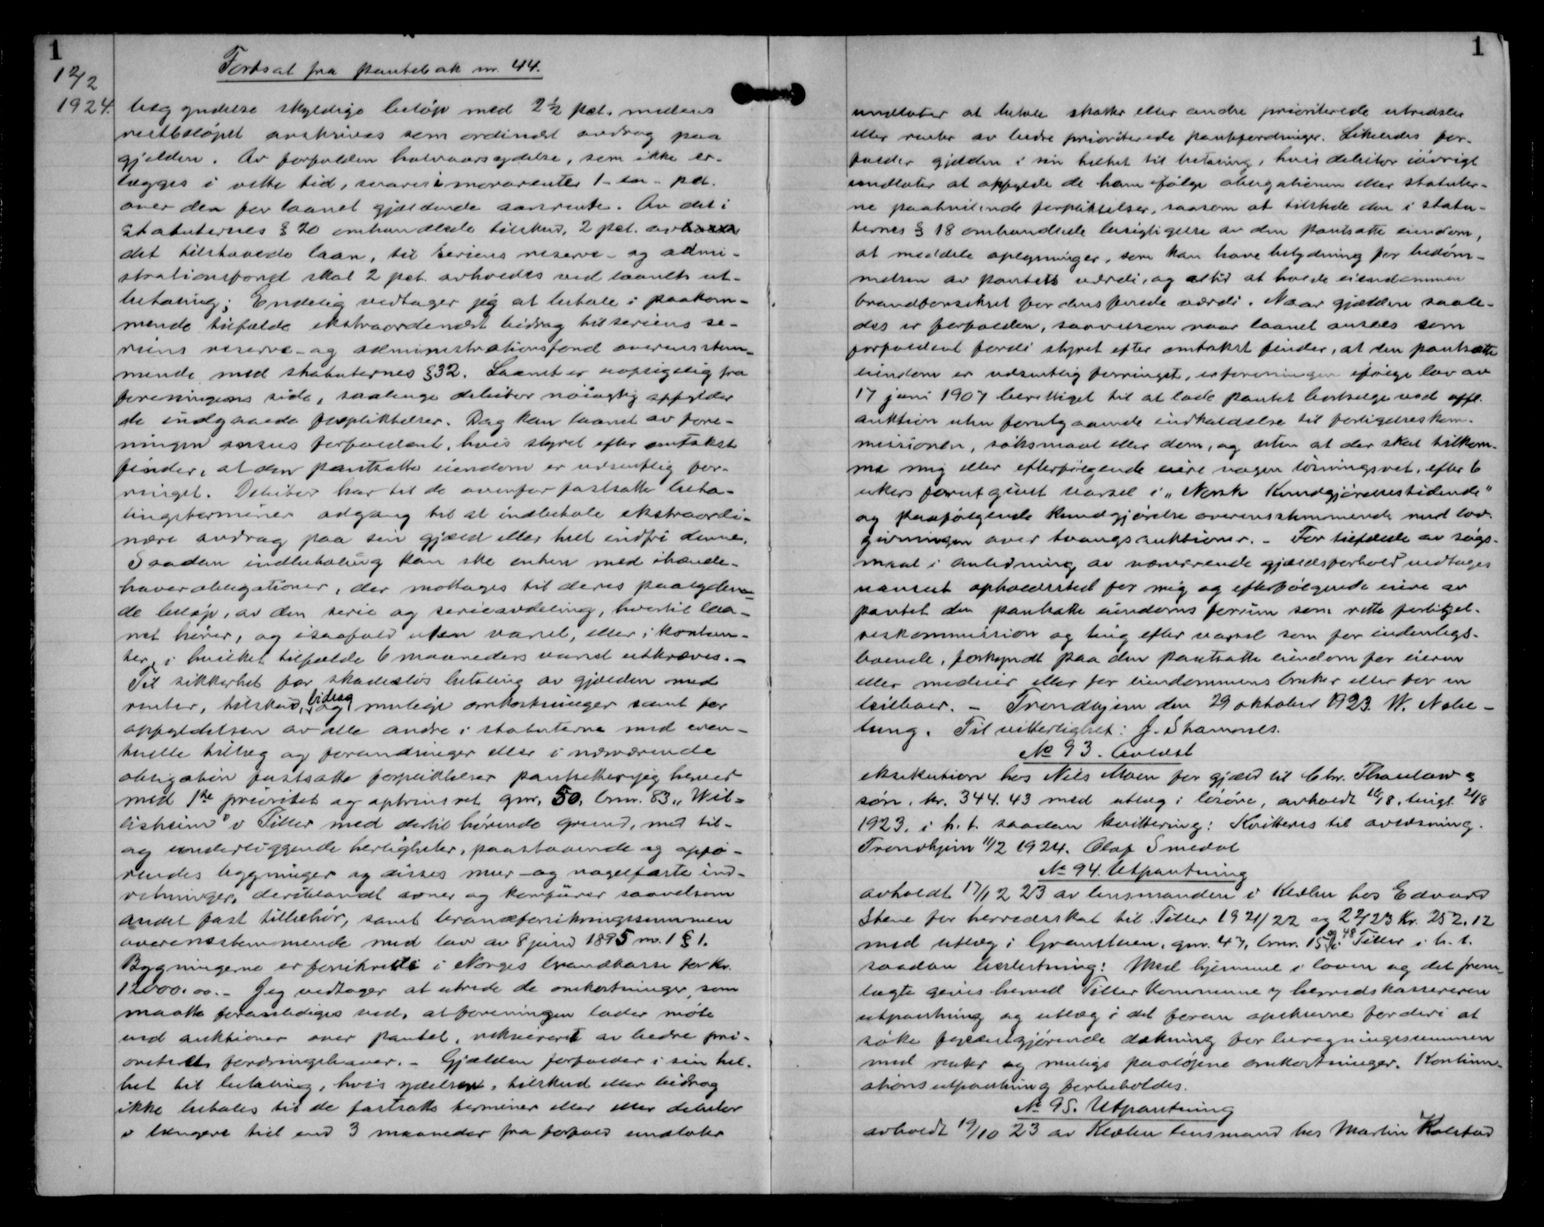 1
12/2
1924.
Fortsat fra pantebok nr. 44.
begyndelse skyldige beløp med 2½ pct. medens
restbeløpet avskrives som ordinært avdrag paa
gjælden. Av forfalden halvaarsydelse, som ikke er-
lægges i rette tid, svares i morarenter 1 - en - pct.
over den for laanet gjældende aarsrente. Av det i
statuternes § 20 omhandlede tilskud, 2 pct. av
det tilstaaede laan, til seriens reserve- og admi-
nistrationsfond skal 2 pct. avholdes ved laanets ut-
betaling; Endelig vedtager jeg at betale i paakom-
mende tilfælde ekstraordinært bidrag til seriens se-
riens reserve- og administrationsfond overensstem-
mende med statuternes § 32. Laanet er uopsigelig fra
foreningens side, saalenge debitor nøiagtig opfylder
de indgaaede forpliktelser. Dog kan laanet av fore-
ningen ansees forfaldent, hvis styret efter omtakst
finder, at den pantsatte eiendom er væsentlig for-
ringet. Debitor har til de ovenfor fastsatte beta-
lingsterminer adgang til at indbetale ekstraordi-
nære avdrag paa sin gjæld eller helt indfri denne.
Saadan indbetaling kan ske enten med ihænde-
haverobligationer, der mottages til deres paalyden-
de beløp, av den serie og serieavdeling, hvortil laa-
net hører, og isaafald uten varsel, eller i kontan-
ter, i hvilket tilfælde 6 maaneders varsel utkræves. -
Til sikkerhet for skadesløs betaling av gjælden med
renter, tilskud, bidrag og mulige omkostninger samt for
opfyldelsen av alle andre i statuterne med even-
tuelle tillæg og forandringer eller i nærværende
obligation fastsatte forpliktelser pantsetter jeg herved
med 1ste prioritet og optrinsret gnr. 50, bnr. 83 „Wil-
lisheim" i Tiller med dertil hørende grund, med til-
og underliggende herligheter, paastaaende og opfø-
rendes bygninger og disses mur- og nagelfaste ind-
retninger, deriblandt ovner og komfurer saavelsom
andet fast tilbehør, samt brandforsikringssummen
overensstemmende med lov av 8 juni 1895 nr. 1 § 1.
Bygningerne er forsikrede i Norges brandkasse for kr.
12000.00. - Jeg vedtager at utrede de omkostninger, som
maatte foranlediges ved, at foreningen lader møte
ved auktioner over pantet, rekvireret av bedre pri-
oriterte fordringshaver. - Gjælden forfalder i sin hel-
het til betaling, hvis ydelsen, tilskud eller bidrag
ikke betales til de fastsatte terminer eller eller debitor
i længere tid end 3 maaneder fra forfald undlater
1
undlater at betale skatter eller andre prioriterede utredsler
eller renter av bedre prioriterede pantefordringer. Likeledes for-
falder gjælden i sin helhet til betaling, hvis debitor iøvrigt
undlater at opfylde de ham ifølge obligationen eller statuter-
ne paahvilende forpliktelser, saasom at tilstede den i statu-
ternes § 18 omhandlede besigtigelse av den pantsatte eiendom,
at meddele oplysninger, som kan have betydning for bedøm-
melsen av pantets værdi, og altid at holde eiendommen
brandforsikret for dens fulde værdi. Naar gjælden saale-
des er forfalden, saavelsom naar laanet ansees som
forfaldent fordi styret efter omtakst finder, at den pantsatte
eiendom er væsentlig forringet, er foreningen ifølge lov av
17 juni 1907 berettiget til at lade pantet bortsælge ved offl.
auktion uten forutgaaende indkaldelse til forlikelseskom-
missionen, søksmaal eller dom, og uten at der skal tilkom-
me mig eller efterfølgende eiere nogen løsningsret, efter 6
ukers forut givet varsel i „Norsk Kundgjørelsestidende"
og paafølgende kundgjørelse overensstemmende med lov-
givningen over tvangsauktioner. - For tilfælde av søgs-
maal i anledning av nærværende gjældsforhold vedtages
uanseet opholdssted for mig og efterfølgende eiere av
pantet den pantsatte eiendoms forum som rette forlikel-
seskommission og ting efter varsel som for indenbygs-
boende, forkyndt paa den pantsatte eiendom for eieren
eller medeier eller for eiendommens bruker eller for en
leieboer. - Trondhjem den 29 oktober 1923. W. Nobe-
lung. Til vitterlighet: J. Stamnes.
№ 93. Avlæst
eksekution hos Nils Moen for gjæld til Chr. Thaulow &
søn. kr. 344.43 med utlæg i løsøre, avholdt 10/8, tingl. 21/8
1923. i h. t. saadan kvittering: Kvitteres til avlæsning.
Trondhjem 11/2 1924. Olaf Smedal
№ 94. Utpantning
avholdt 17/12 23 av lensmanden i Klæbu hos Edvard
Stene for herredsskat til Tiller 1921/22 og 22/23 Kr. 252.12
med utlæg i Granstuen, gnr. 47, bnr. 15 og 48 i Tiller i h. t.
saadan beslutning: Med hjemmel i loven og det frem-
lagte gives herved Tiller kommune v/ herredskassereren
utpantning og utlæg i det foran opskrevne forderi at
søke fyldestgjørende dækning for beregningssummen
med renter og mulige paaløpne omkostninger. Kontinu-
ationsutpantning forbeholdes.
№ 95. Utpantning
avholdt 19/10 23 av Klæbu lensmand hos Martin Kolstad